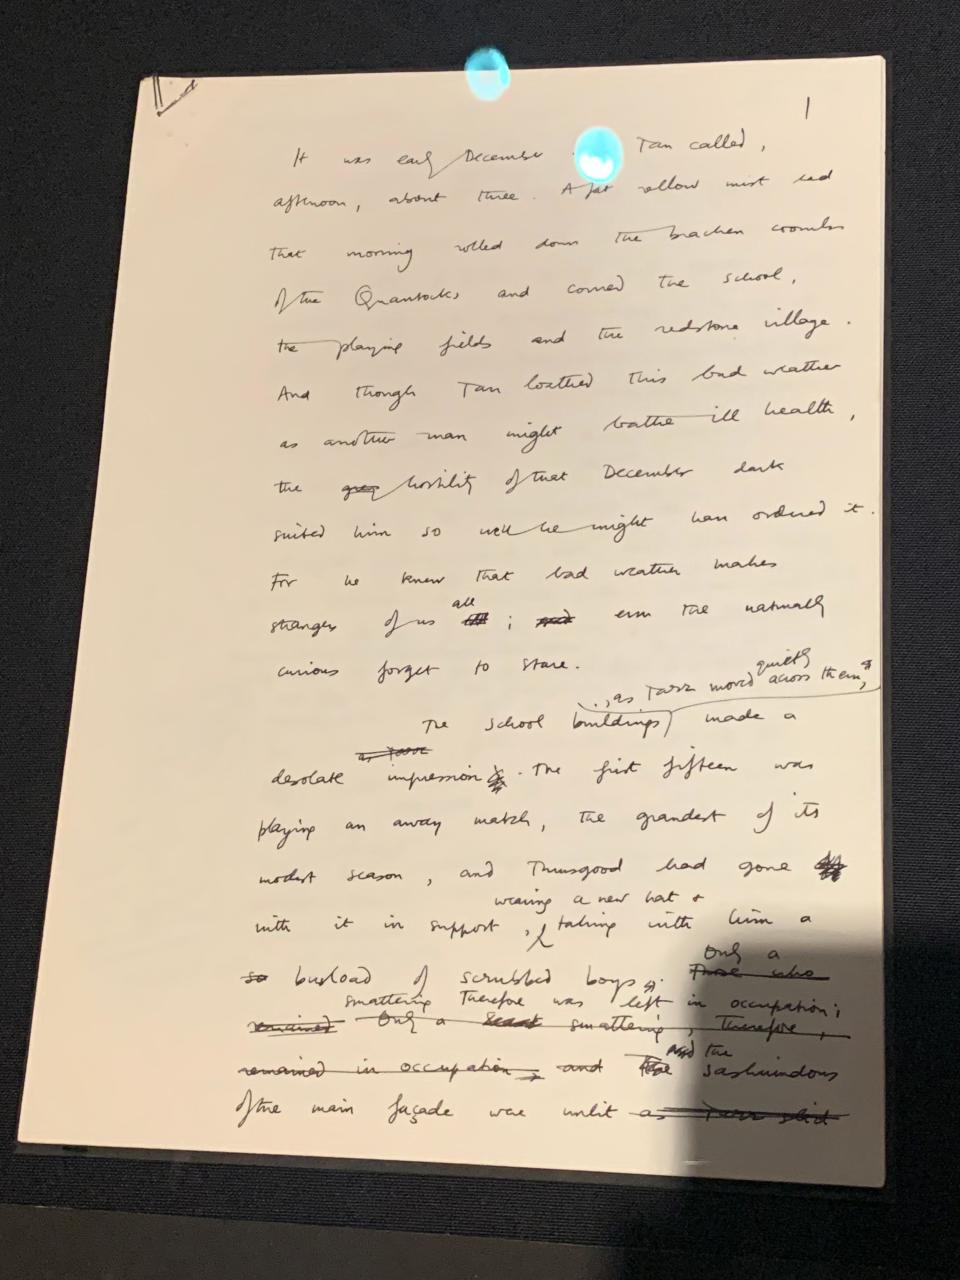 1
It was early December Tarr called,
afternoon, about three. A fat yellow mist had
that morning rolled down the bracken coombs
of the Quantocks and covered the school,
the playing fields and the redstone village.
And though Tarr loathed this bad weather
as another man might loathe ill health,
the grey hostility of that December dark
suited him so well he might have ordered it.
For he knew that bad weather makes
strangers of us all ; and even the naturally
curious forget to stare.
, as Tarr moved quietly across them,
The school buildings made a
as Tarr
desolate impression . The first fifteen was
playing an away match, the grandest of its
modest season, and Thursgood had gone
wearing a new hat &
with it in support, taking with him a
Only a
so busload of scrubbed boys. Those who
smattering therefore was left in occupation;
remained Only a scant smattering, therefore,
and the
remained in occupation and the sashwindows
of the main façade were unlit as Tarr slid